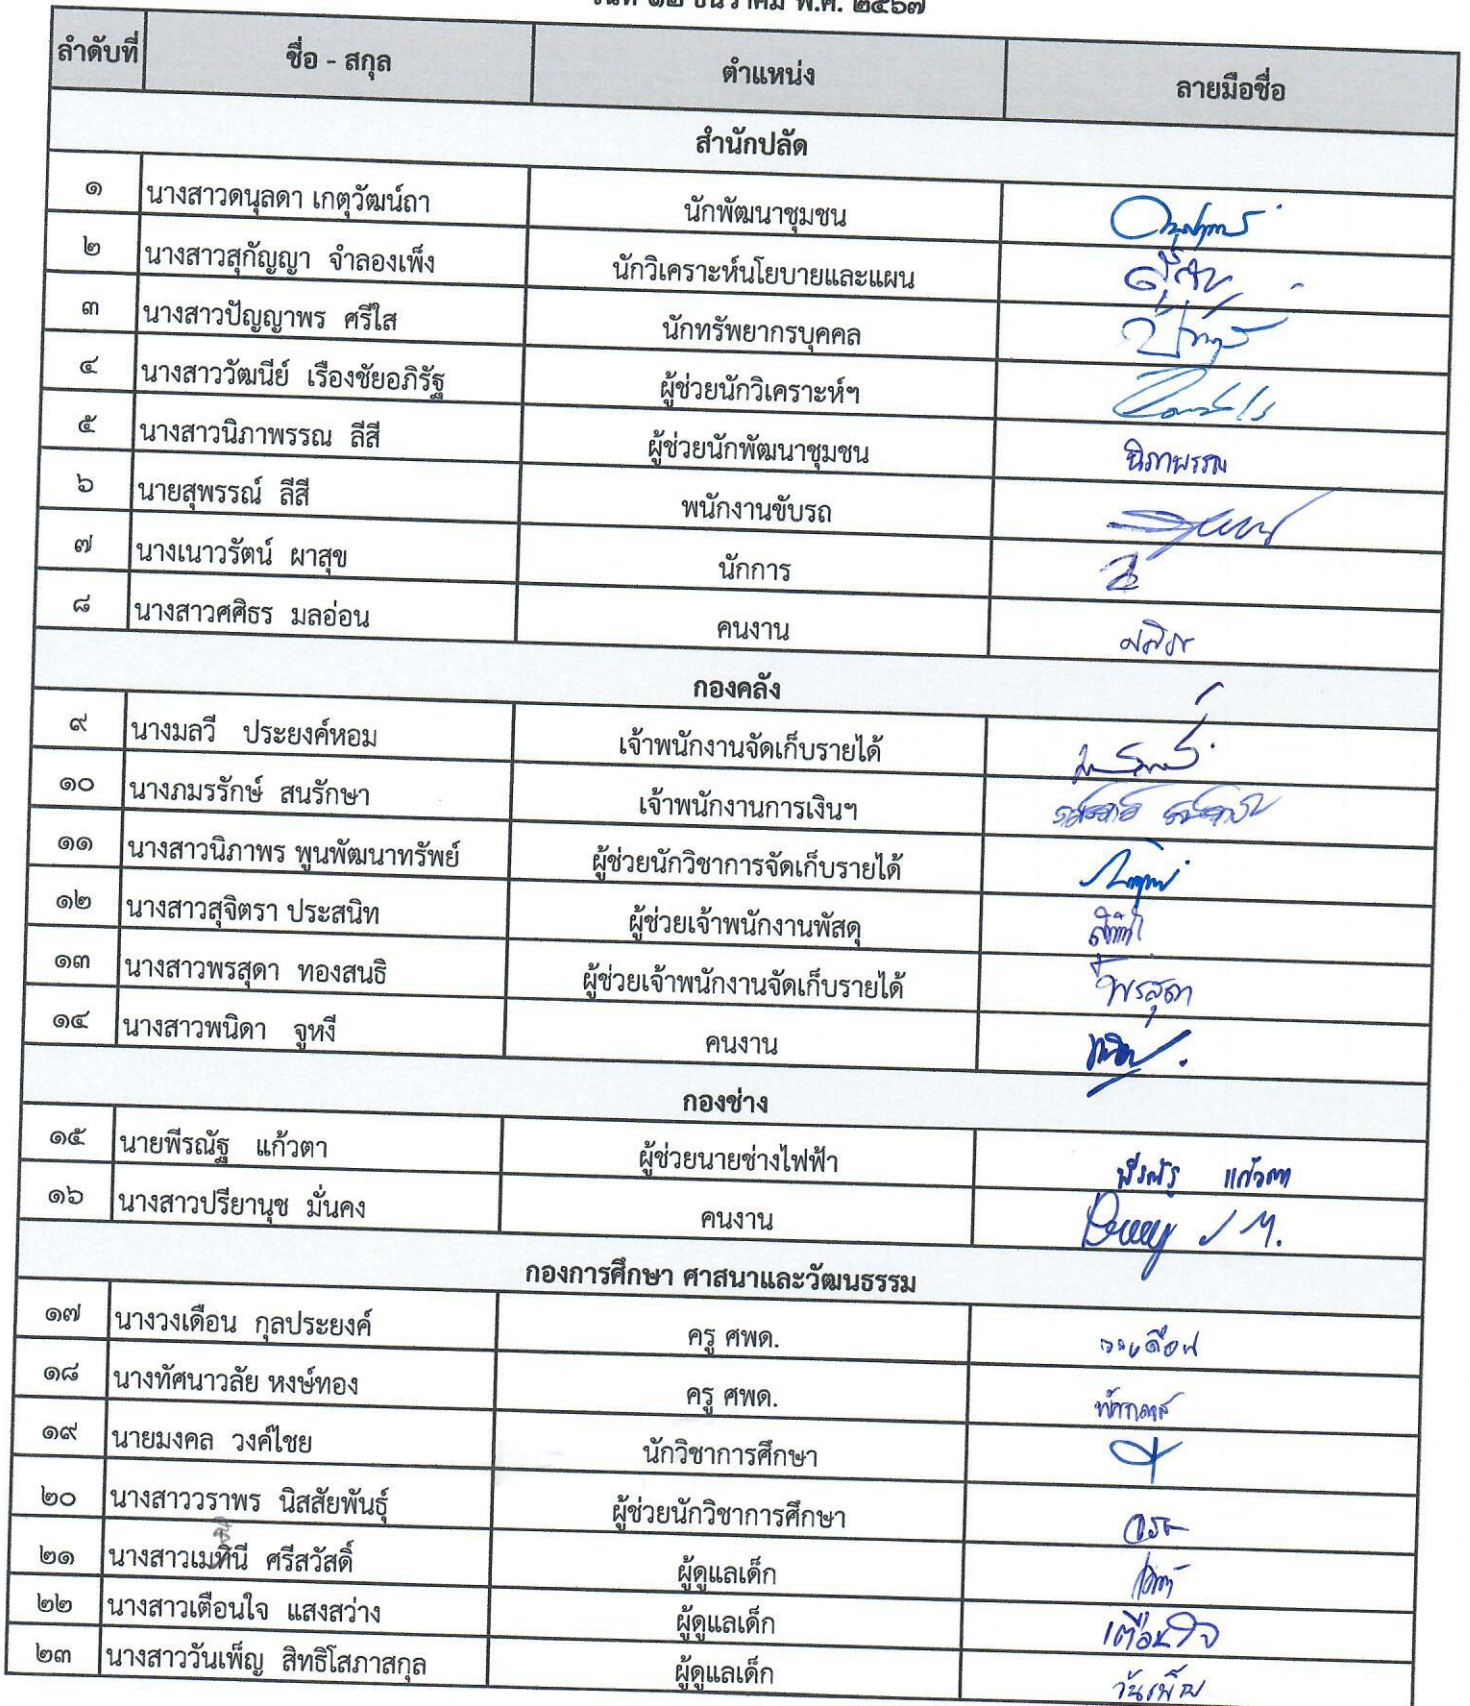 วันที่ ๑๒ ธันวาคม พ.ศ. ๒๕๖๗
ลำดับที่ ชื่อ - สกุล ตำแหน่ง ลายมือชื่อ
สำนักปลัด
๑ นางสาวดนุลดา เกตุวัฒน์ถา นักพัฒนาชุมชน
๒ นางสาวสุกัญญา จำลองเพ็ง นักวิเคราะห์นโยบายและแผน
๓ นางสาวปัญญาพร ศรีใส นักทรัพยากรบุคคล
๔ นางสาววัฒนีย์ เรืองชัยอภิรัฐ ผู้ช่วยนักวิเคราะห์ฯ
๕ นางสาวนิภาพรรณ ลีสี ผู้ช่วยนักพัฒนาชุมชน นิภาพรรณ
๖ นายสุพรรณ์ ลีสี พนักงานขับรถ
๗ นางเนาวรัตน์ ผาสุข นักการ
๘ นางสาวศศิธร มลอ่อน คนงาน
กองคลัง
๙ นางมลวี ประยงค์หอม เจ้าพนักงานจัดเก็บรายได้
๑๐ นางภมรรักษ์ สนรักษา เจ้าพนักงานการเงินฯ
๑๑ นางสาวนิภาพร พูนพัฒนาทรัพย์ ผู้ช่วยนักวิชาการจัดเก็บรายได้
๑๒ นางสาวสุจิตรา ประสนิท ผู้ช่วยเจ้าพนักงานพัสดุ
๑๓ นางสาวพรสุดา ทองสนธิ ผู้ช่วยเจ้าพนักงานจัดเก็บรายได้ พรสุดา
๑๔ นางสาวพนิดา จูหงี คนงาน
กองช่าง
๑๕ นายพีรณัฐ แก้วตา ผู้ช่วยนายช่างไฟฟ้า พีรณัฐ แก้วตา
๑๖ นางสาวปรียานุช มั่นคง คนงาน
กองการศึกษา ศาสนาและวัฒนธรรม
๑๗ นางวงเดือน กุลประยงค์ ครู ศพด. วงเดือน
๑๘ นางทัศนาวลัย หงษ์ทอง ครู ศพด.
๑๙ นายมงคล วงค์ไชย นักวิชาการศึกษา
๒๐ นางสาววราพร นิสสัยพันธุ์ ผู้ช่วยนักวิชาการศึกษา
๒๑ นางสาวเมทินี ศรีสวัสดิ์ ผู้ดูแลเด็ก
๒๒ นางสาวเตือนใจ แสงสว่าง ผู้ดูแลเด็ก เตือนใจ
๒๓ นางสาววันเพ็ญ สิทธิโสภาสกุล ผู้ดูแลเด็ก วันเพ็ญ